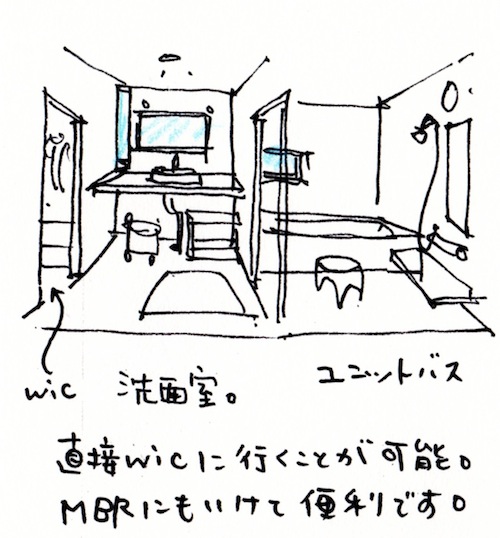 ユニットバス
wic 洗面室。
直接wicに行くことが可能。
MBRにもいけて便利です。